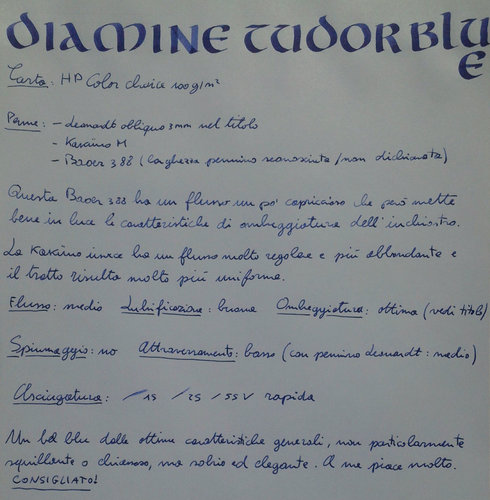 DIAMINE TUDOR BLU
E
Carta: HP Color choice 100g/m²
Penne: - Leonardt obliquo 3mm nel titolo
- Kaküno M
- Baoer 388 (larghezza pennino sconosciuta/non dichiarata)
Questa Baoer 388 ha un flusso un po' capriccioso che però mette
bene in luce le caratteristiche di ombreggiatura dell'inchiostro.
La Kaküno invece ha un flusso molto regolare e più abbondante e
il tratto risulta molto più uniforme.
Flusso: medio Lubrificazione: buona Ombreggiatura: ottima (vedi titolo)
Spiumaggio: no Attraversamento: basso (con pennino Leonardt: medio)
Asciugatura: /1s /2s /5s V rapida
Un bel blu dalle ottime caratteristiche generali, non particolarmente
squillante o chiassoso, ma sobrio ed elegante. A me piace molto.
CONSIGLIATO!